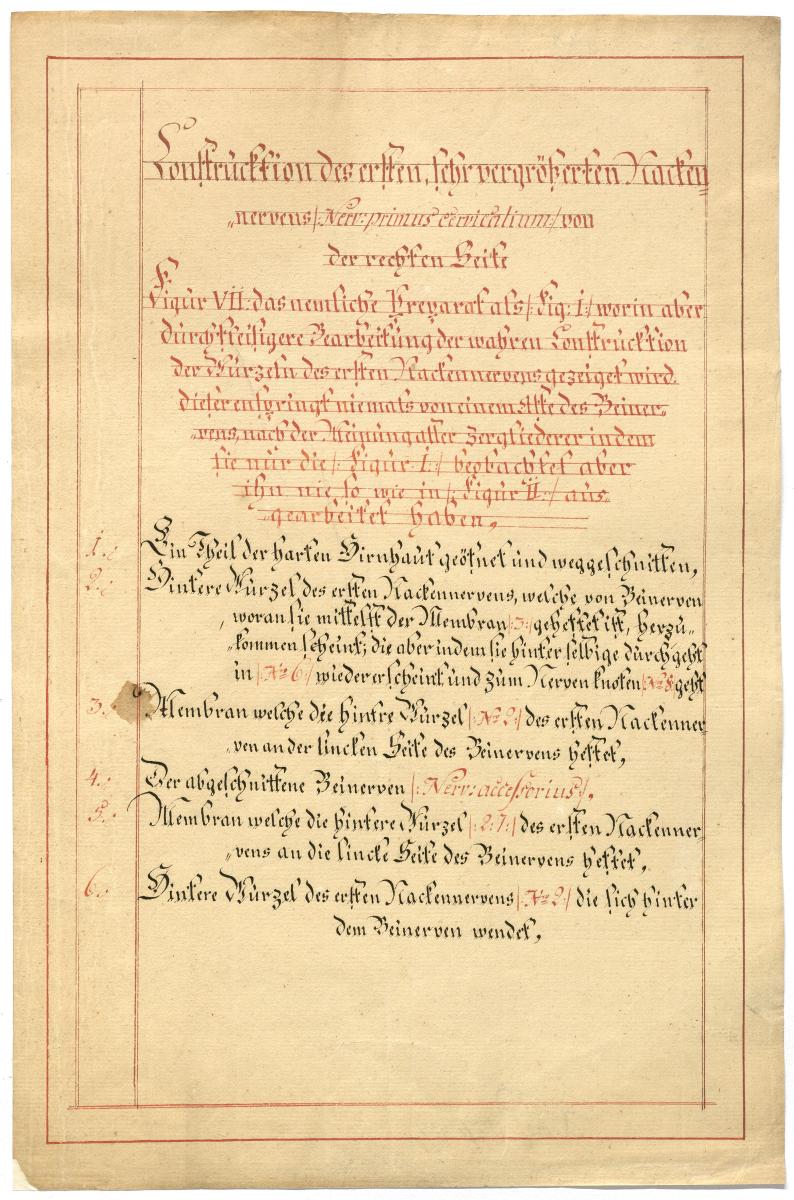 Construcktion des ersten, sehr vergrößerten Nacken=
„nervens /: Nerv: primus cervicalium :/ von
der rechten Seite
Figur VII: das nemliche Preparat als /: Fig: I :/ worin aber
durch fleisigere Bearbeitung der wahren Construcktion
der Wurzeln des ersten Nackennervens gezeiget wird.
dieser entspringt niemals von einem Aste des Beiner„
„vens, nach der Meinung aller Zergliederer indem
sie nur die /: Figur: I. :/ beobachtet aber
ihn nie so wie in /: Figur II :/ aus„
„gearbeitet haben,
1.: Ein Theil der harten Hirnhaut geöfnet und weggeschnitten,
2.: Hintere Wurzel des ersten Nackennervens, welche von Beinerven
woran sie mittelst der Membran /: 3 :/ geheftet ist, herzu„
„kommen scheint; die aber indem sie hinter selbige durchgeht
in /: № 6 :/ wieder erscheint und zum Nervenknoten /: № 8 :/ geht
3.: Membran welche die hintre Wurzel /: № 2 :/ des ersten Nackenner„
„ven an der lincken Seite des Beinervens heftet,
4.: Der abgeschnittene Beinerven /: Nerv: accessorius :/,
5.: Membran welche die hintere Wurzel /: 2: 7: / des ersten Nackenner„
„vens an die lincke Seite des Beinervens heftet,
6.: Hintere Wurzel des ersten Nackennervens /: № 2 :/ die sich hinter
dem Beinerven wendet,